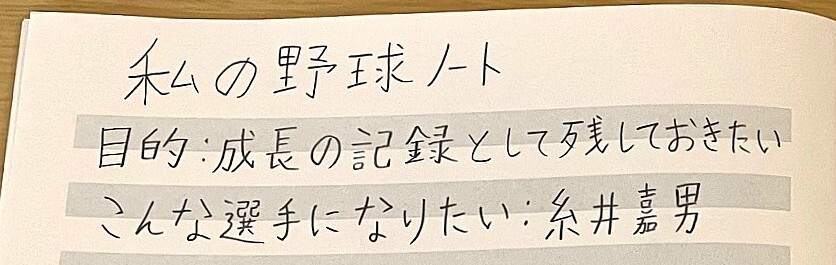 私の野球ノート
目的:成長の記録として残しておきたい
こんな選手になりたい:糸井嘉男